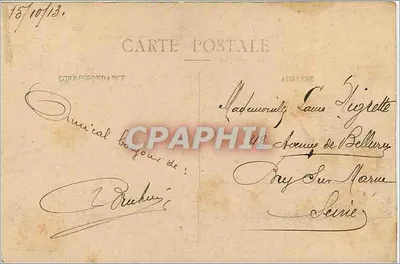 15/10/13.
CARTE POSTALE
CORRESPONDANCE
ADRESSE
Amical bonjour de:
Mademoiselle
Avenue de Bellevue
Bry Sur Marne
Seine
CPAPHIL